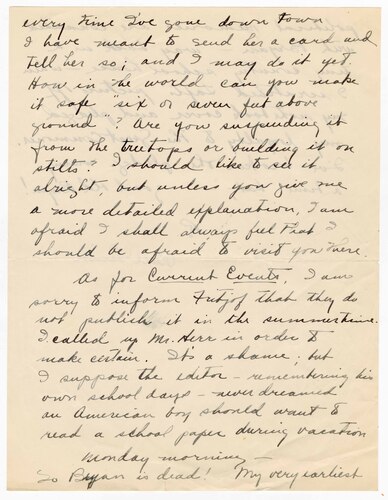 every time I've gone down town
I have meant to send her a card and
tell her so; and I may do it yet.
How in the world can you make
it safe "six or seven feet above
ground"? Are you suspending it
from the treetops or building it on
stilts? I should like to see it
alright, but unless you give me
a more detailed explanation, I am
afraid I shall always feel that I
should be afraid to visit you there.
As for Current Events, I am
sorry to inform Fritjof that they do
not publish it in the summertime.
I called up Mr. Herr in order to
make certain. It's a shame; but
I suppose the editor – remembering his
own school days – never dreamed
an American boy should want to
read a school paper during vacation
Monday morning –
So Bryan is dead! My very earliest